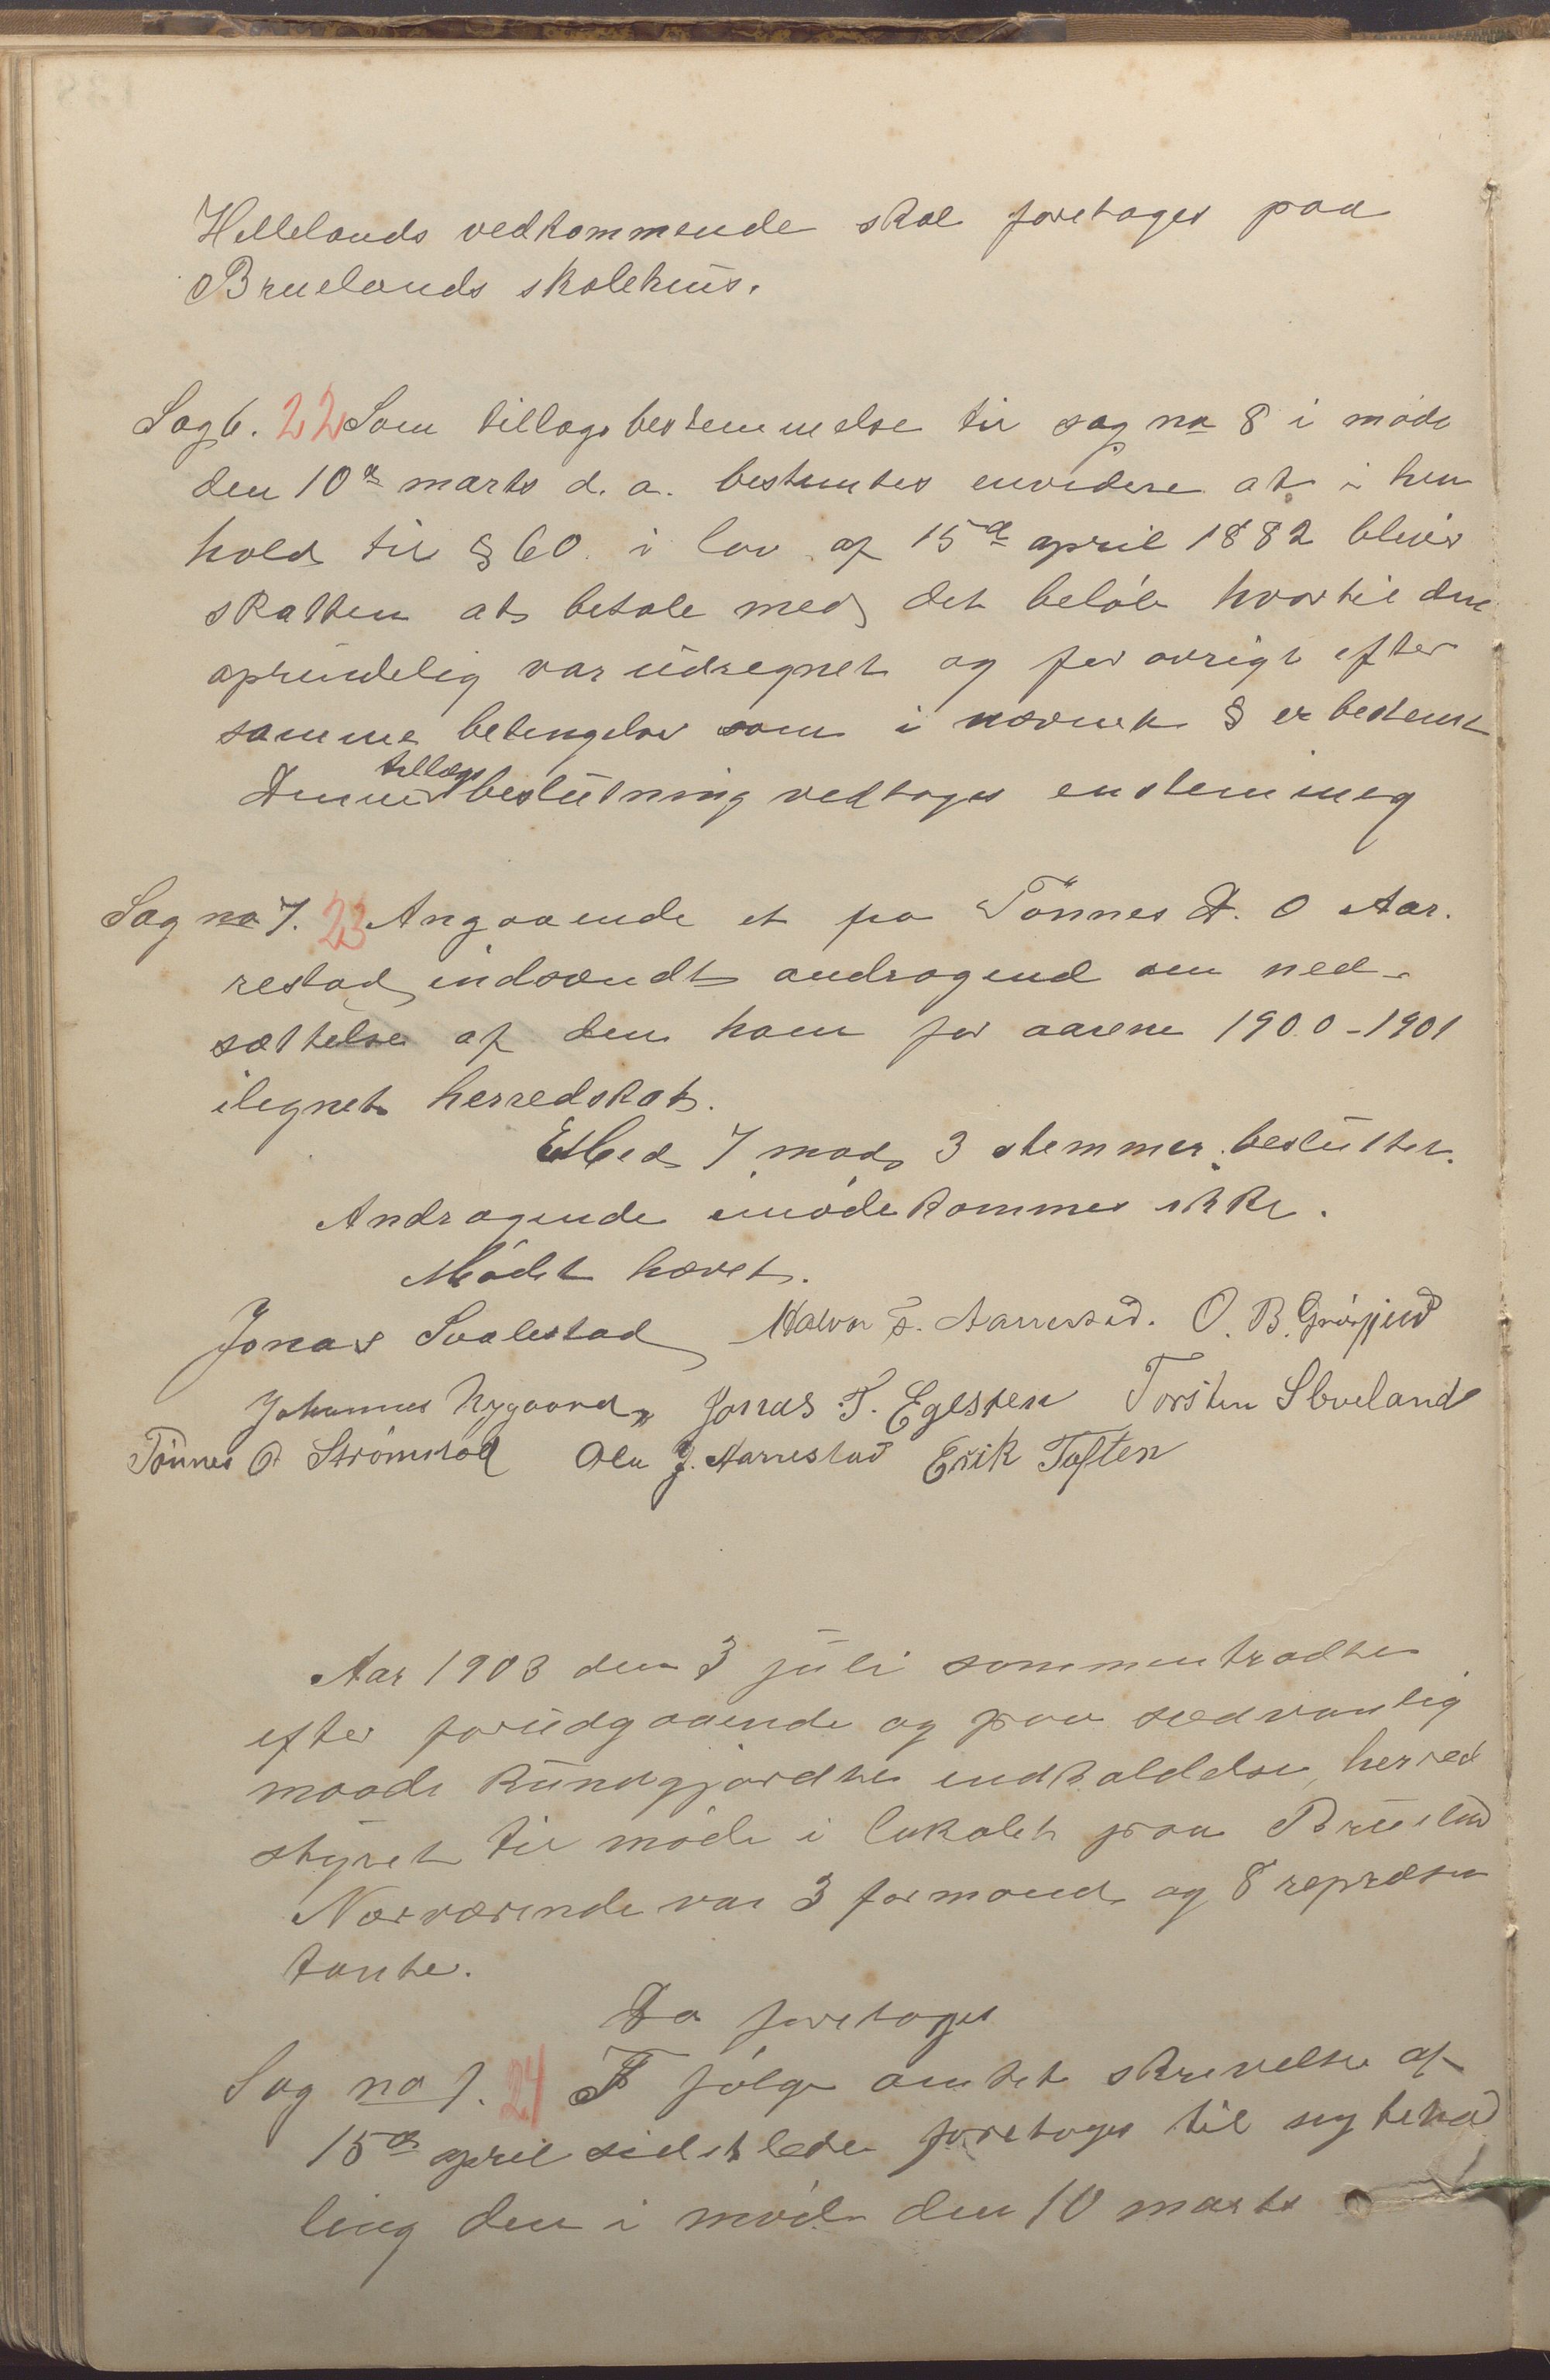 Hellelands vedkommende skal foretages paa
Bruelands skolehus.
Sag 6. 22 Som tillægsbestemmelse til sag no 8 i møde
den 10de marts d. a. bestemtes envidere at i hen
hold til § 60. i lov af 15de april 1882 bliver
skatten at betale med det beløb hvortil den
oprindelig var udregnet og for øvrigt efter
samme betingelser som i nævnte § er bestemt
Denne tillægs beslutning vedtoges enstemmig
Sag no 7. 23 Angaaende et fra Tønnes A. O Aar.
restad indsendt andragend om ned-
sættelse af den ham for aarene 1900-1901
ilignet herredskat.
Med 7 mod 3 stemmer besluttet.
Andragende imødekommes ikke.
Mødet hævet.
Jonas Svalestad Halvor T. Aarrestad. O. B. Grøsfjeld
Johannes Nygaard Jonas T. Egelsæen Torsten Sleveland
Tønnes O Strømstad Ole J. Aarrestad Erik Toften
Aar 1903 den 3 juli sammentraadte
efter forudgaaende og paa sædvanlig
maade kundgjordte indkaldelse, herred
styret til møde i lokalet paa Brueland
Nærværende var 3 formænd og 8 repræsen
tanter.
Da foretoges
Sag no 1. 24 I følge amtets skrivelse af
15de april sidstleden foretoges til ny behand
ling den i møde den 10 marts